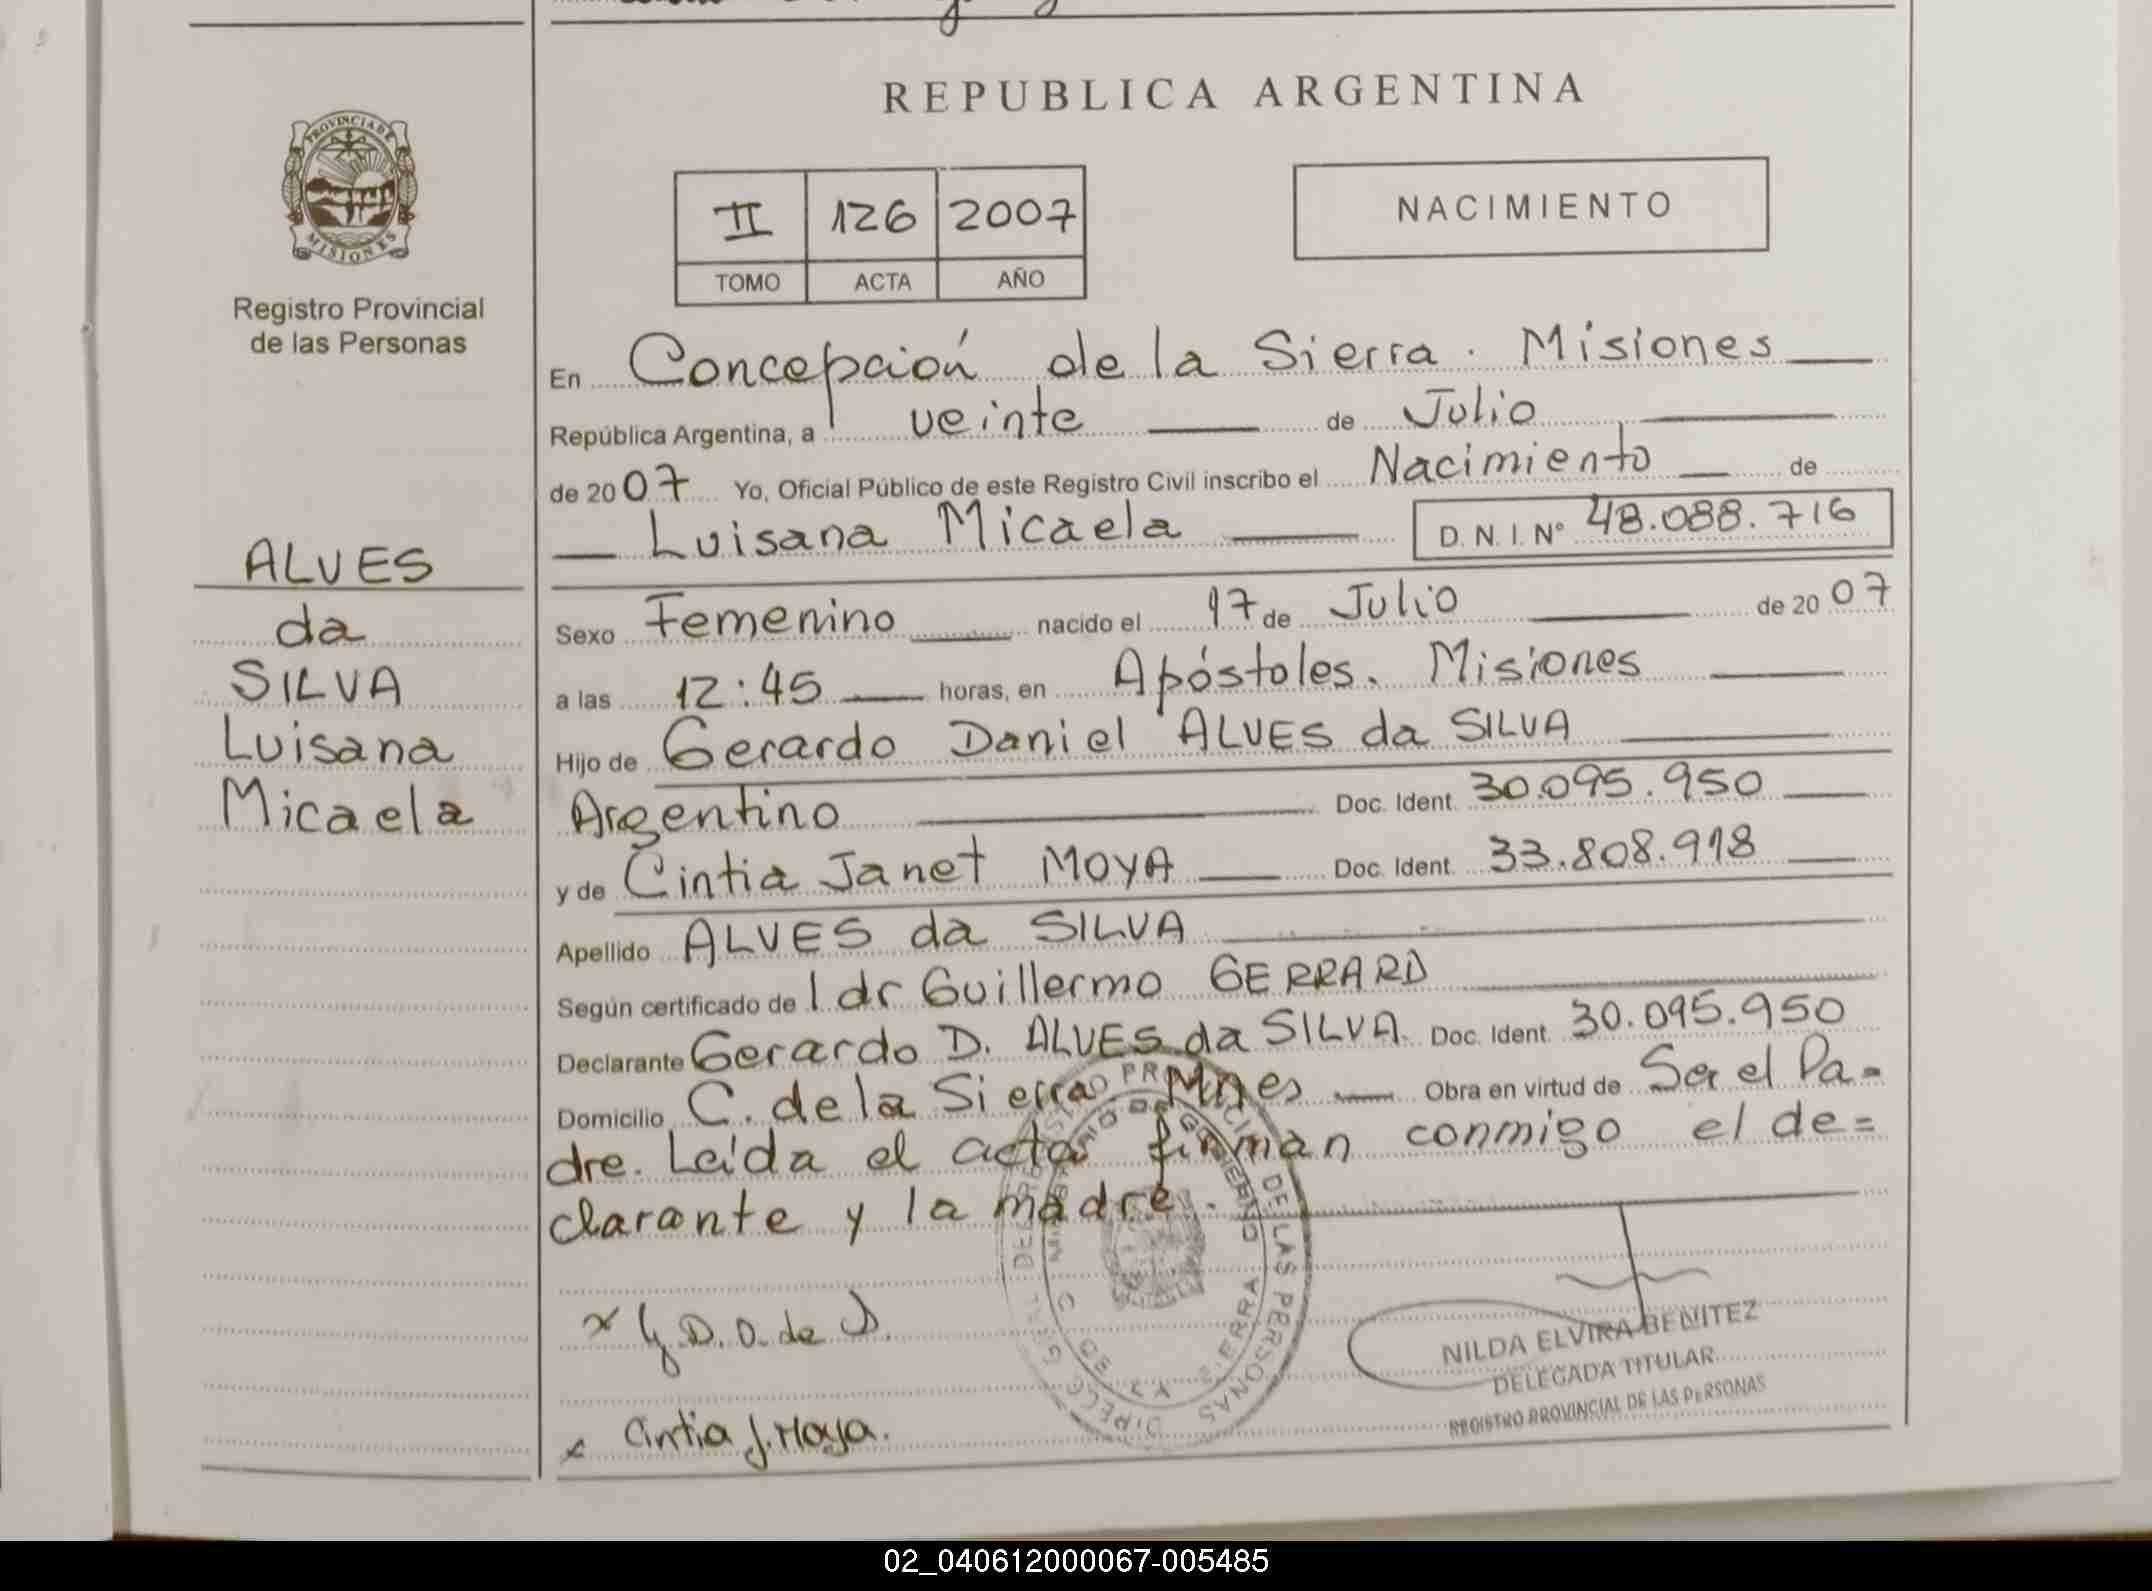 REPUBLICA ARGENTINA
PROVINCIA DE
MISIONES
Registro Provincial
de las Personas
II 126 2007
TOMO ACTA AÑO
NACIMIENTO
En Concepción de la Sierra. Misiones
República Argentina, a veinte de Julio
de 2007 Yo, Oficial Público de este Registro Civil inscribo el Nacimiento de
Luisana Micaela D. N. I. Nº 48.088.716
ALVES
da
SILVA
Luisana
Micaela
Sexo Femenino nacido el 17 de Julio de 2007
a las 12:45 horas, en Apóstoles. Misiones
Hijo de Gerardo Daniel ALVES da SILVA
Argentino Doc. Ident. 30.095.950
y de Cintia Janet MOYA Doc. Ident. 33.808.918
Apellido ALVES da SILVA
Según certificado de l dr Guillermo GERRARD
Declarante Gerardo D. ALVES da SILVA. Doc. Ident. 30.095.950
Domicilio C. de la Sierra Mnes Obra en virtud de Ser el Pa-
dre. Leída el acta firman conmigo el de=
clarante y la madre.
x G.D.A. da S.
x Cintia J. Moya.
NILDA ELVIRA BENITEZ
DELEGADA TITULAR
REGISTRO PROVINCIAL DE LAS PERSONAS
02_040612000067-005485